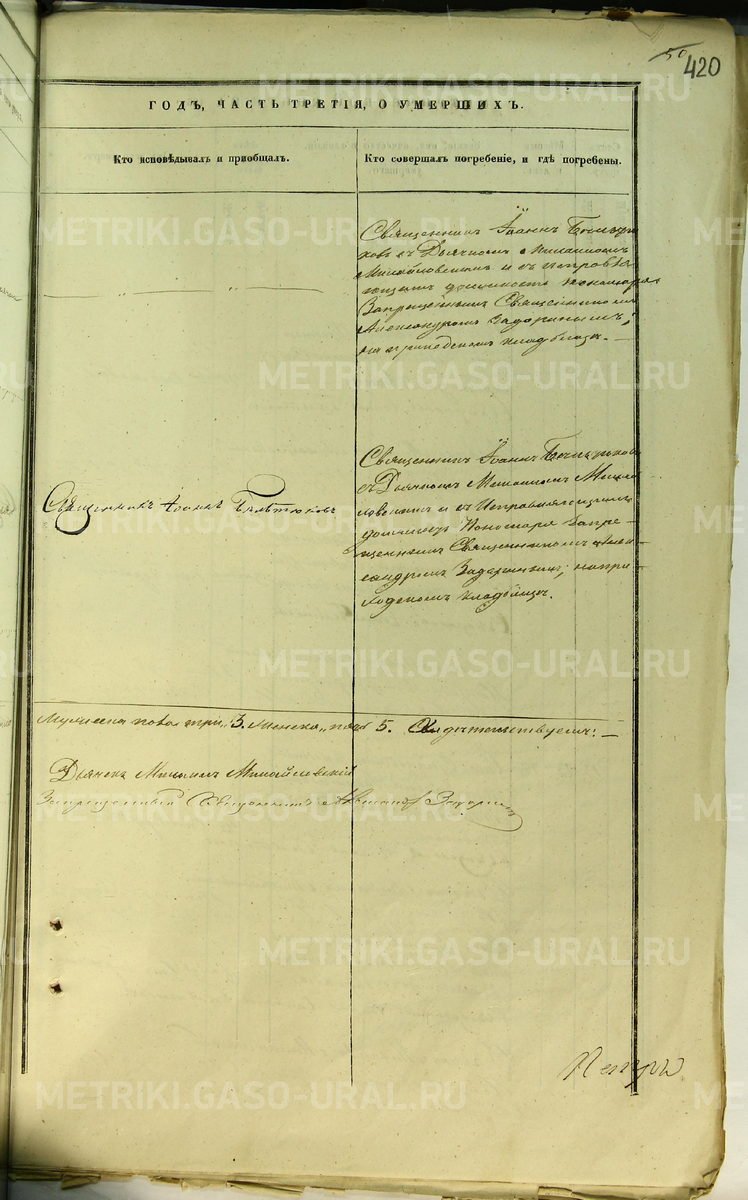 50
420
ГОДЪ, ЧАСТЬ ТРЕТІЯ, О УМЕРШИХЪ.
Кто исповѣдывалъ и приобщалъ.
Кто совершалъ погребеніе, и гдѣ погребены.
Священникъ Іоаннъ
ковъ съ Дьячкомъ
Михайловскимъ и съ исправля
ющимъ должность пономаря
Запрещеннымъ Священникомъ
Александромъ Задоринымъ;
на приходскомъ кладбищѣ.
Священникъ Іоаннъ
Священникъ Іоаннъ
съ Дьячкомъ Михай
ловскимъ и съ Исправляющимъ
должность Пономаря Запре-
щеннымъ Священникомъ Алек-
сандромъ Задоринымъ; на при-
ходскомъ кладбищѣ.
Мужеска пола три, 3. Женска, пять 5. Свидѣтельствуемъ:
Дьячекъ Михайловскій
Запрещенный Священникъ Задоринъ
METRIKI.GASO-URAL.RU